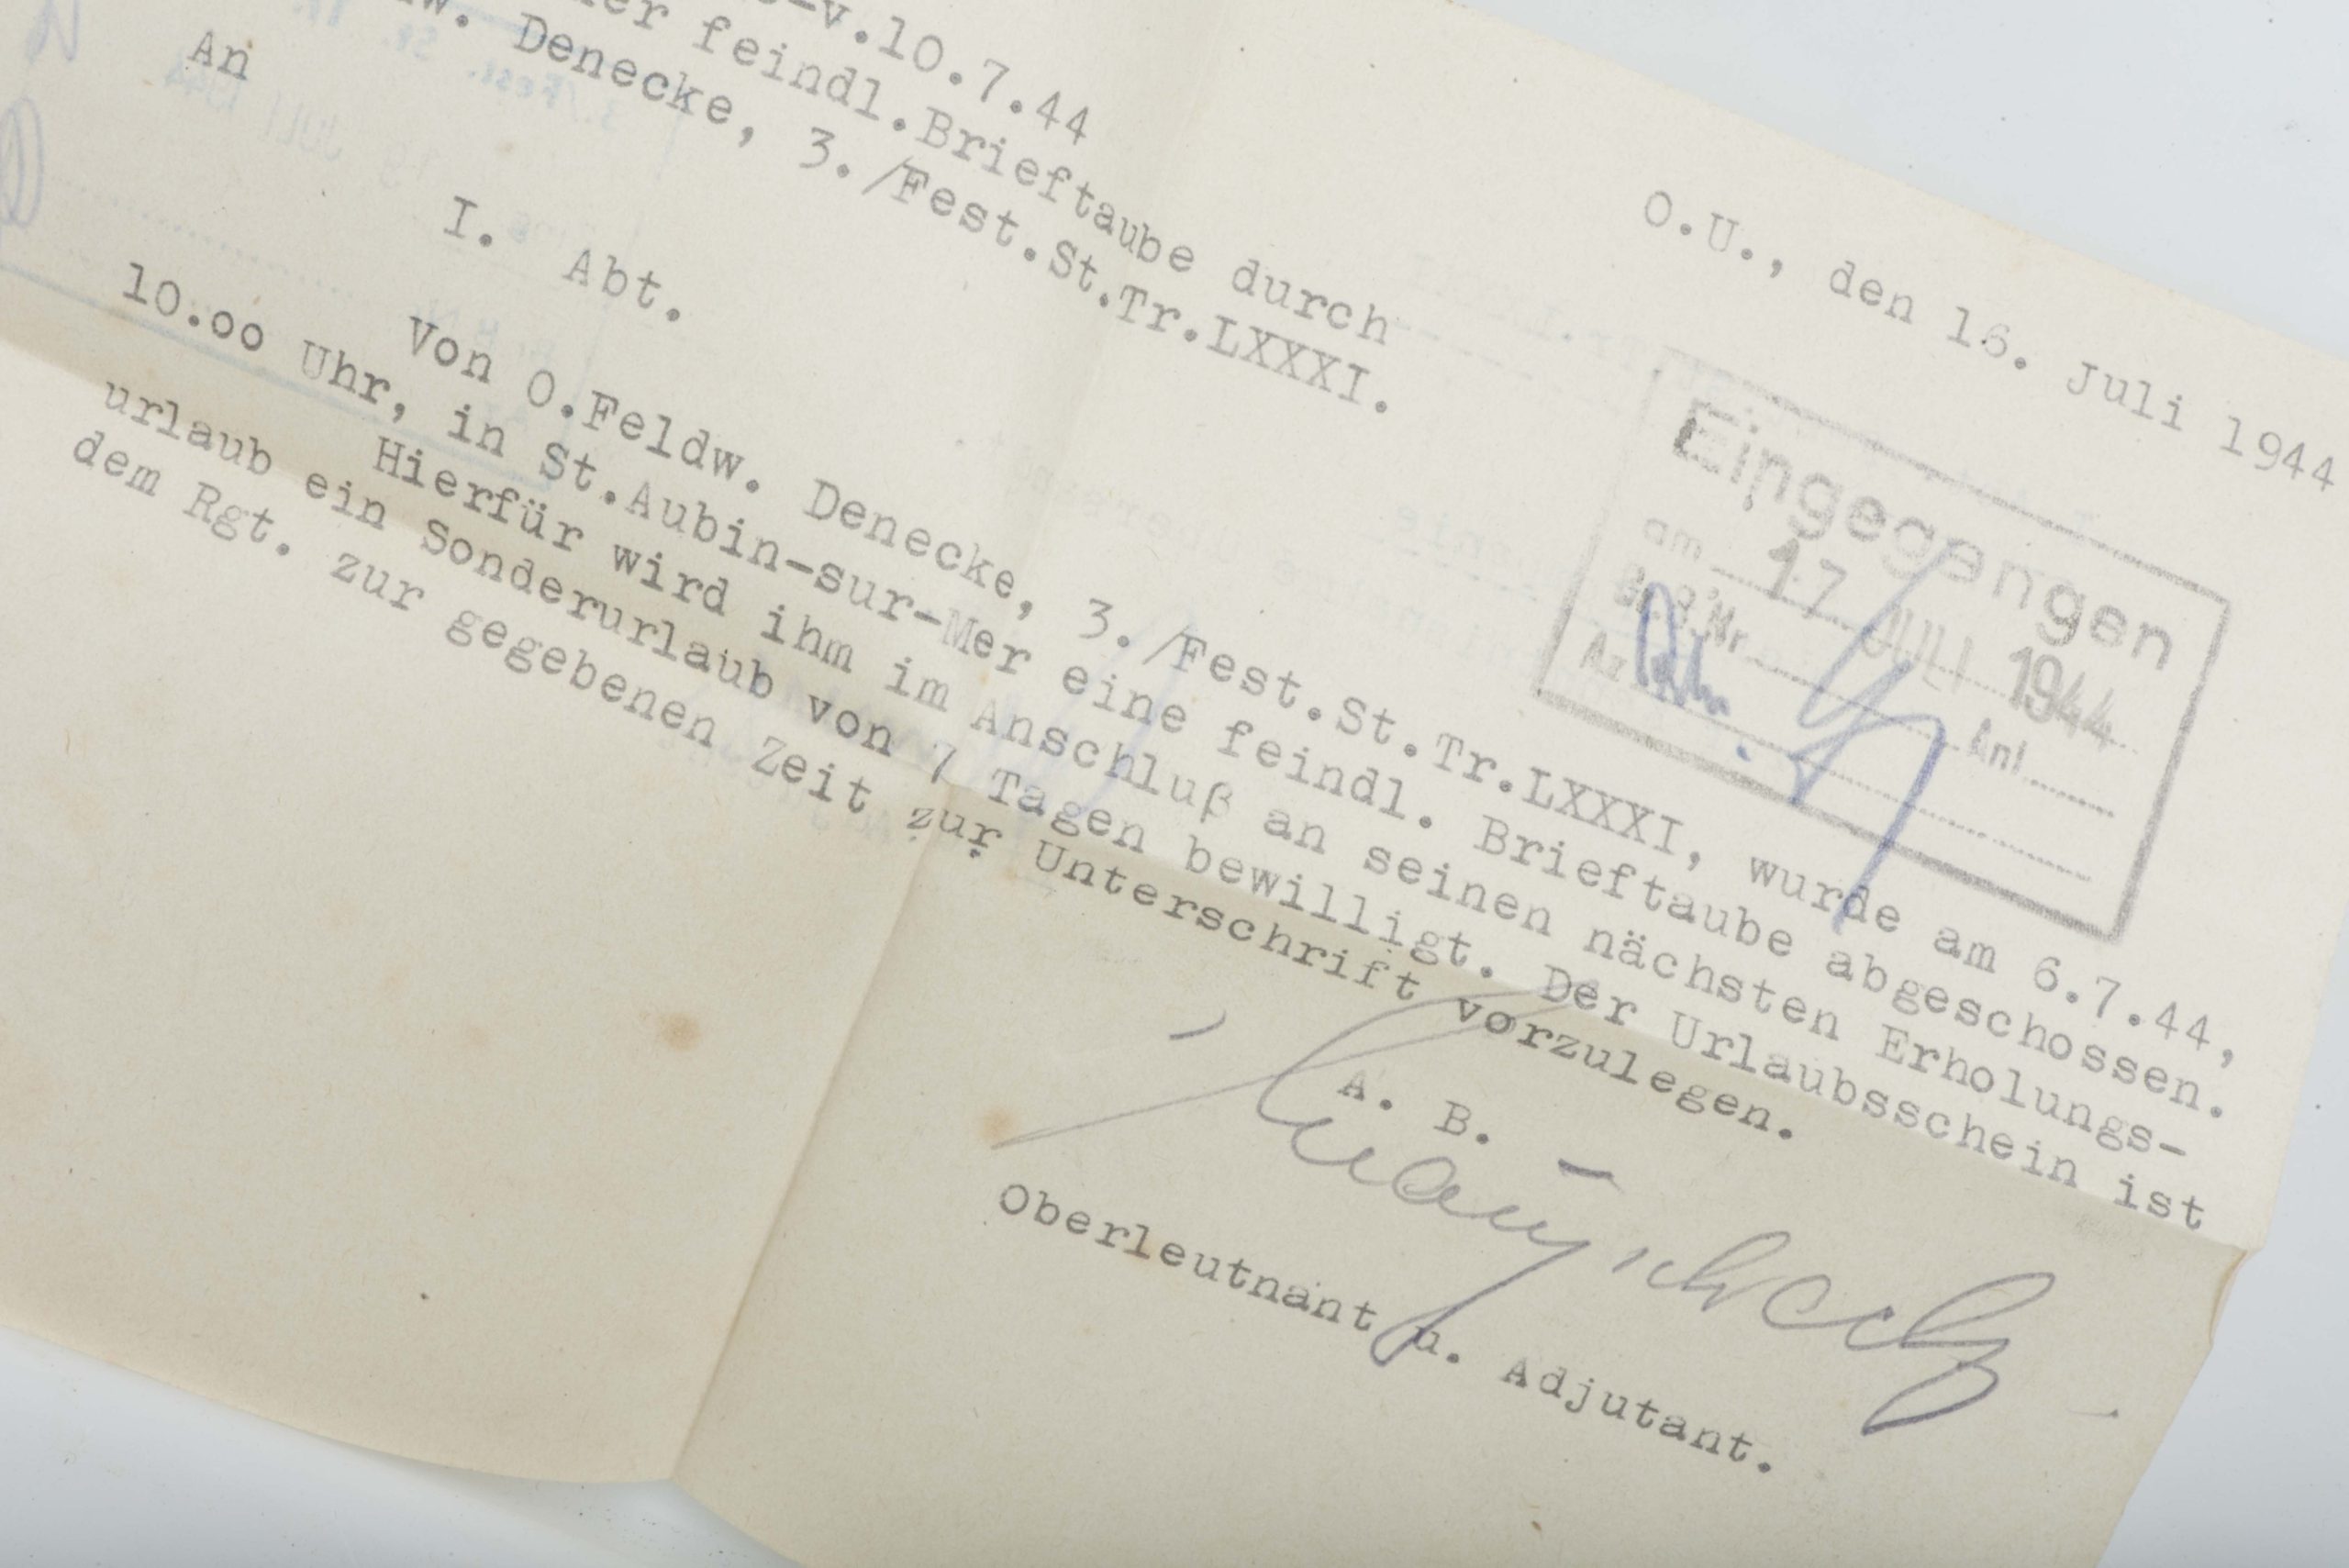 O.U., den 16. Juli 1944
-v.10.7.44
er feindl.Brieftaube durch
w. Denecke, 3./Fest.St.Tr.LXXXI.
An
I. Abt.
Eingegangen
am 17. JULI 1944
Nr. Anl.
Az.
Von O.Feldw. Denecke, 3./Fest.St.Tr.LXXXI, wurde am 6.7.44,
10.oo Uhr, in St.Aubin-sur-Mer eine feindl. Brieftaube abgeschossen.
Hierfür wird ihm im Anschluß an seinen nächsten Erholungs-
urlaub ein Sonderurlaub von 7 Tagen bewilligt. Der Urlaubsschein ist
dem Rgt. zur gegebenen Zeit zur Unterschrift vorzulegen.
A. B.
Oberleutnant u. Adjutant.